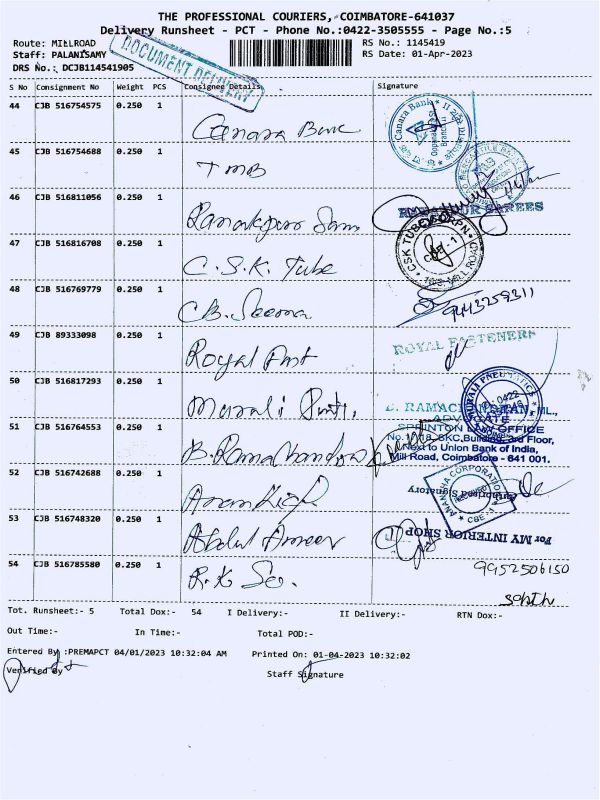 THE PROFESSIONAL COURIERS, COIMBATORE-641037
Delivery Runsheet - PCT - Phone No.:0422-3505555 - Page No.:5
Route: MILLROAD
RS No.: 1145419
Staff: PALANISAMY
RS Date: 01-Apr-2023
DRS No.: DCJB114541905
DOCUMENT DELIVERY
S No Consignment No Weight PCS Consignee Details Signature
44 CJB 516754575 0.250 1 Canara Bank
Canara Bank
45 CJB 516754688 0.250 1 TMB
46 CJB 516811056 0.250 1
SAREES
47 CJB 516816708 0.250 1 C.S.K. Tube
CSK TUBE CORPN
MILL ROAD
48 CJB 516769779 0.250 1 CB. Seema
9443259311
49 CJB 89333098 0.250 1 Royal Fast
ROYAL FASTENERS
50 CJB 516817293 0.250 1 Murali
MURALI PNEUMATICS
51 CJB 516764553 0.250 1 B. Ramachandran
B. RAMACHANDRAN, ML.,
ADVOCATE
LAW OFFICE
SKC,Building, 3rd Floor,
Next to Union Bank of India,
Mill Road, Coimbatore - 641 001.
52 CJB 516742688 0.250 1
ANANTHA CORPORATION
CBE-1
Authorised Signatory
53 CJB 516748320 0.250 1 Abdul Ameer
For MY INTERIOR SHOP
54 CJB 516785580 0.250 1 R.K
9952506150
Tot. Runsheet:- 5 Total Dox:- 54 I Delivery:- II Delivery:- RTN Dox:-
Out Time:- In Time:- Total POD:-
Entered By :PREMAPCT 04/01/2023 10:32:04 AM Printed On: 01-04-2023 10:32:02
Verified By Staff Signature